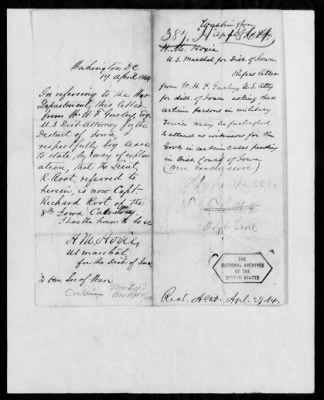 Washington D.C.
17 April 1864
In referring to the War
Department, this letter
from Mr. W. F. Gurley, Esq.
U.S. Dist. Attorney for the
District of Iowa,
respectfully beg leave
to state, by way of explan
ation, that the Lieut.
R. Root, referred to
herein, is now Capt.
Richard Root of the
8th Iowa Cavalry
I have the honor to be &c
H. M. Hoxie,
US marshal,
for the Dist of Iowa
To Hon Sec of War
Washington
H. M. Hoxie
U.S. Marshal for Dist of Iowa
Refers letter
from W. H. F. Gurley, U.S. Atty
for dist. of Iowa asking that
certain persons in military
service may be furloughed
to attend as witnesses for the
Govt. in certain cases pending
in Dist Court of Iowa
(one enclosure)
THE
NATIONAL ARCHIVES
OF THE
UNITED STATES
Recd. Apl. 27. 64.